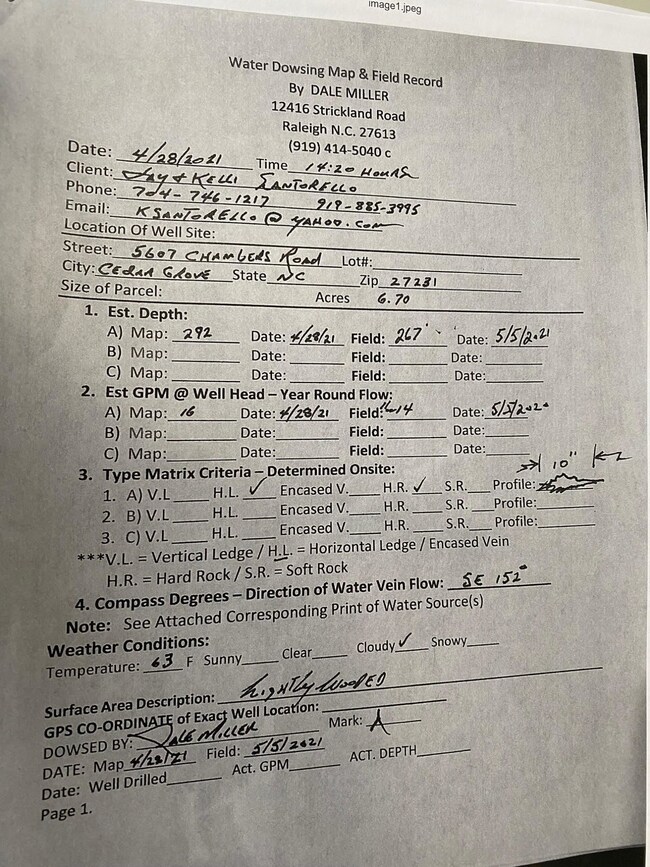 image1.jpeg
Water Dowsing Map & Field Record
By DALE MILLER
12416 Strickland Road
Raleigh N.C. 27613
(919) 414-5040 c
Date: 4/28/2021 Time 14:20 HOURS
Client: JAY & KELLI SANTORELLO
Phone: 704-746-1217 919-885-3995
Email: KSANTORELLO@YAHOO.COM
Location Of Well Site:
Street: 5607 CHAMBERS ROAD Lot#:
City: CEDAR GROVE State NC Zip 27231
Size of Parcel: Acres 6.70
1. Est. Depth:
A) Map: 292 Date: 4/28/21 Field: 267' Date: 5/5/2021
B) Map: Date: Field: Date:
C) Map: Date: Field: Date:
2. Est GPM @ Well Head – Year Round Flow:
A) Map: 16 Date: 4/28/21 Field: 14 Date:
B) Map: Date: Field: Date:
C) Map: Date: Field: Date:
3. Type Matrix Criteria – Determined Onsite: 10"
1. A) V.L H.L. ✓ Encased V. H.R. ✓ S.R. Profile:
2. B) V.L H.L. Encased V. H.R. S.R. Profile:
3. C) V.L H.L. Encased V. H.R. S.R. Profile:
***V.L. = Vertical Ledge / H.L. = Horizontal Ledge / Encased Vein
H.R. = Hard Rock / S.R. = Soft Rock
4. Compass Degrees – Direction of Water Vein Flow: SE 152°
Note: See Attached Corresponding Print of Water Source(s)
Weather Conditions:
Temperature: 63 F Sunny Clear Cloudy ✓ Snowy
Surface Area Description: LIGHTLY WOODED
GPS CO-ORDINATE of Exact Well Location:
DOWSED BY: DALE MILLER Mark: A
DATE: Map 4/28/21 Field: 5/5/2021
Date: Well Drilled Act. GPM ACT. DEPTH
Page 1.